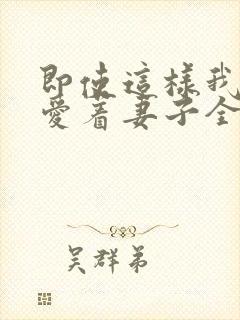 即使這樣我
愛着妻子全
吴群弟